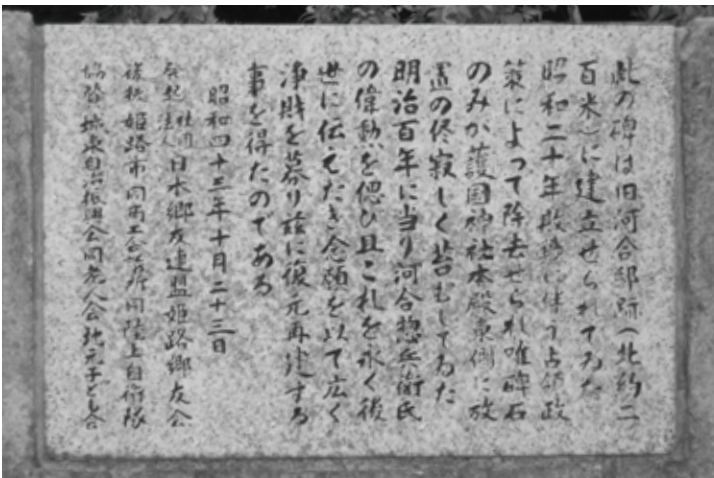 此の碑は旧河合邸跡(北約二
百米)に建立せられてゐた
昭和二十年敗戦に伴う占領政
策によって除去せられ唯碑石
のみが護国神社本殿東側に放
置の侭寂しく苔むしてゐた
明治百年に当り河合惣兵衛氏
の偉勲を偲び且これを永く後
世に伝えたき念願を以て広く
浄財を募り茲に復元再建する
事を得たのである
昭和四十三年十月二十三日
発起 社団法人 日本郷友連盟姫路郷友会
後援 姫路市 同商工会議所 同陸上自衛隊
協賛 城東自治振興会 同老人会 地元子ども会